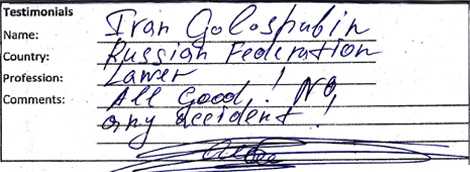 Testimonials
Name: Ivan Golospubin
Country: Russian Federation
Profession: Lawer
Comments: All Good! No
any accident!